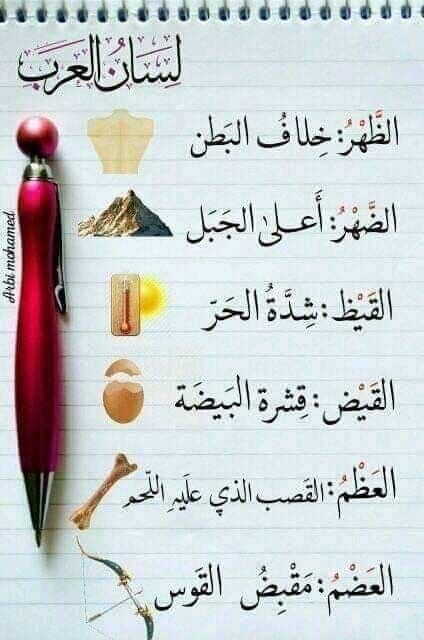 لِسَانُ العَرَب
الظَّهْرُ: خِلافُ البَطن
الضَّهْرُ: أَعلىٰ الجَبَل
القَيْظ: شِدَّةُ الحَرّ
القَيْض: قِشرة البَيضَة
العَظْمُ: القَصب الذي علَيهِ اللّحم
العَضْمُ: مَقْبِضُ القَوس
Arbi mohamed